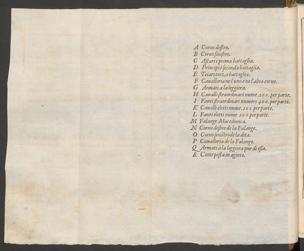 A Corno destro.
B Corno sinistro.
C Astati ò prima battaglia.
D Principi ò seconda battaglia.
E Triarii ò terza battaglia.
F Cavalleria ne l'uno e ne l'altro corno.
G Armati a la leggiera.
H Cavalli straordinari nume. 200. per parte.
I Fanti straordinari numero 400. per parte.
K Cavalli eletti nume. 100. per parte.
L Fanti eletti nume. per parte.
M Falange Macedonica.
N Corno destro de la Falange.
O Corno sinistro de la detta.
P Cavalleria de la Falange.
Q Armati a la leggiera pur di essa.
R